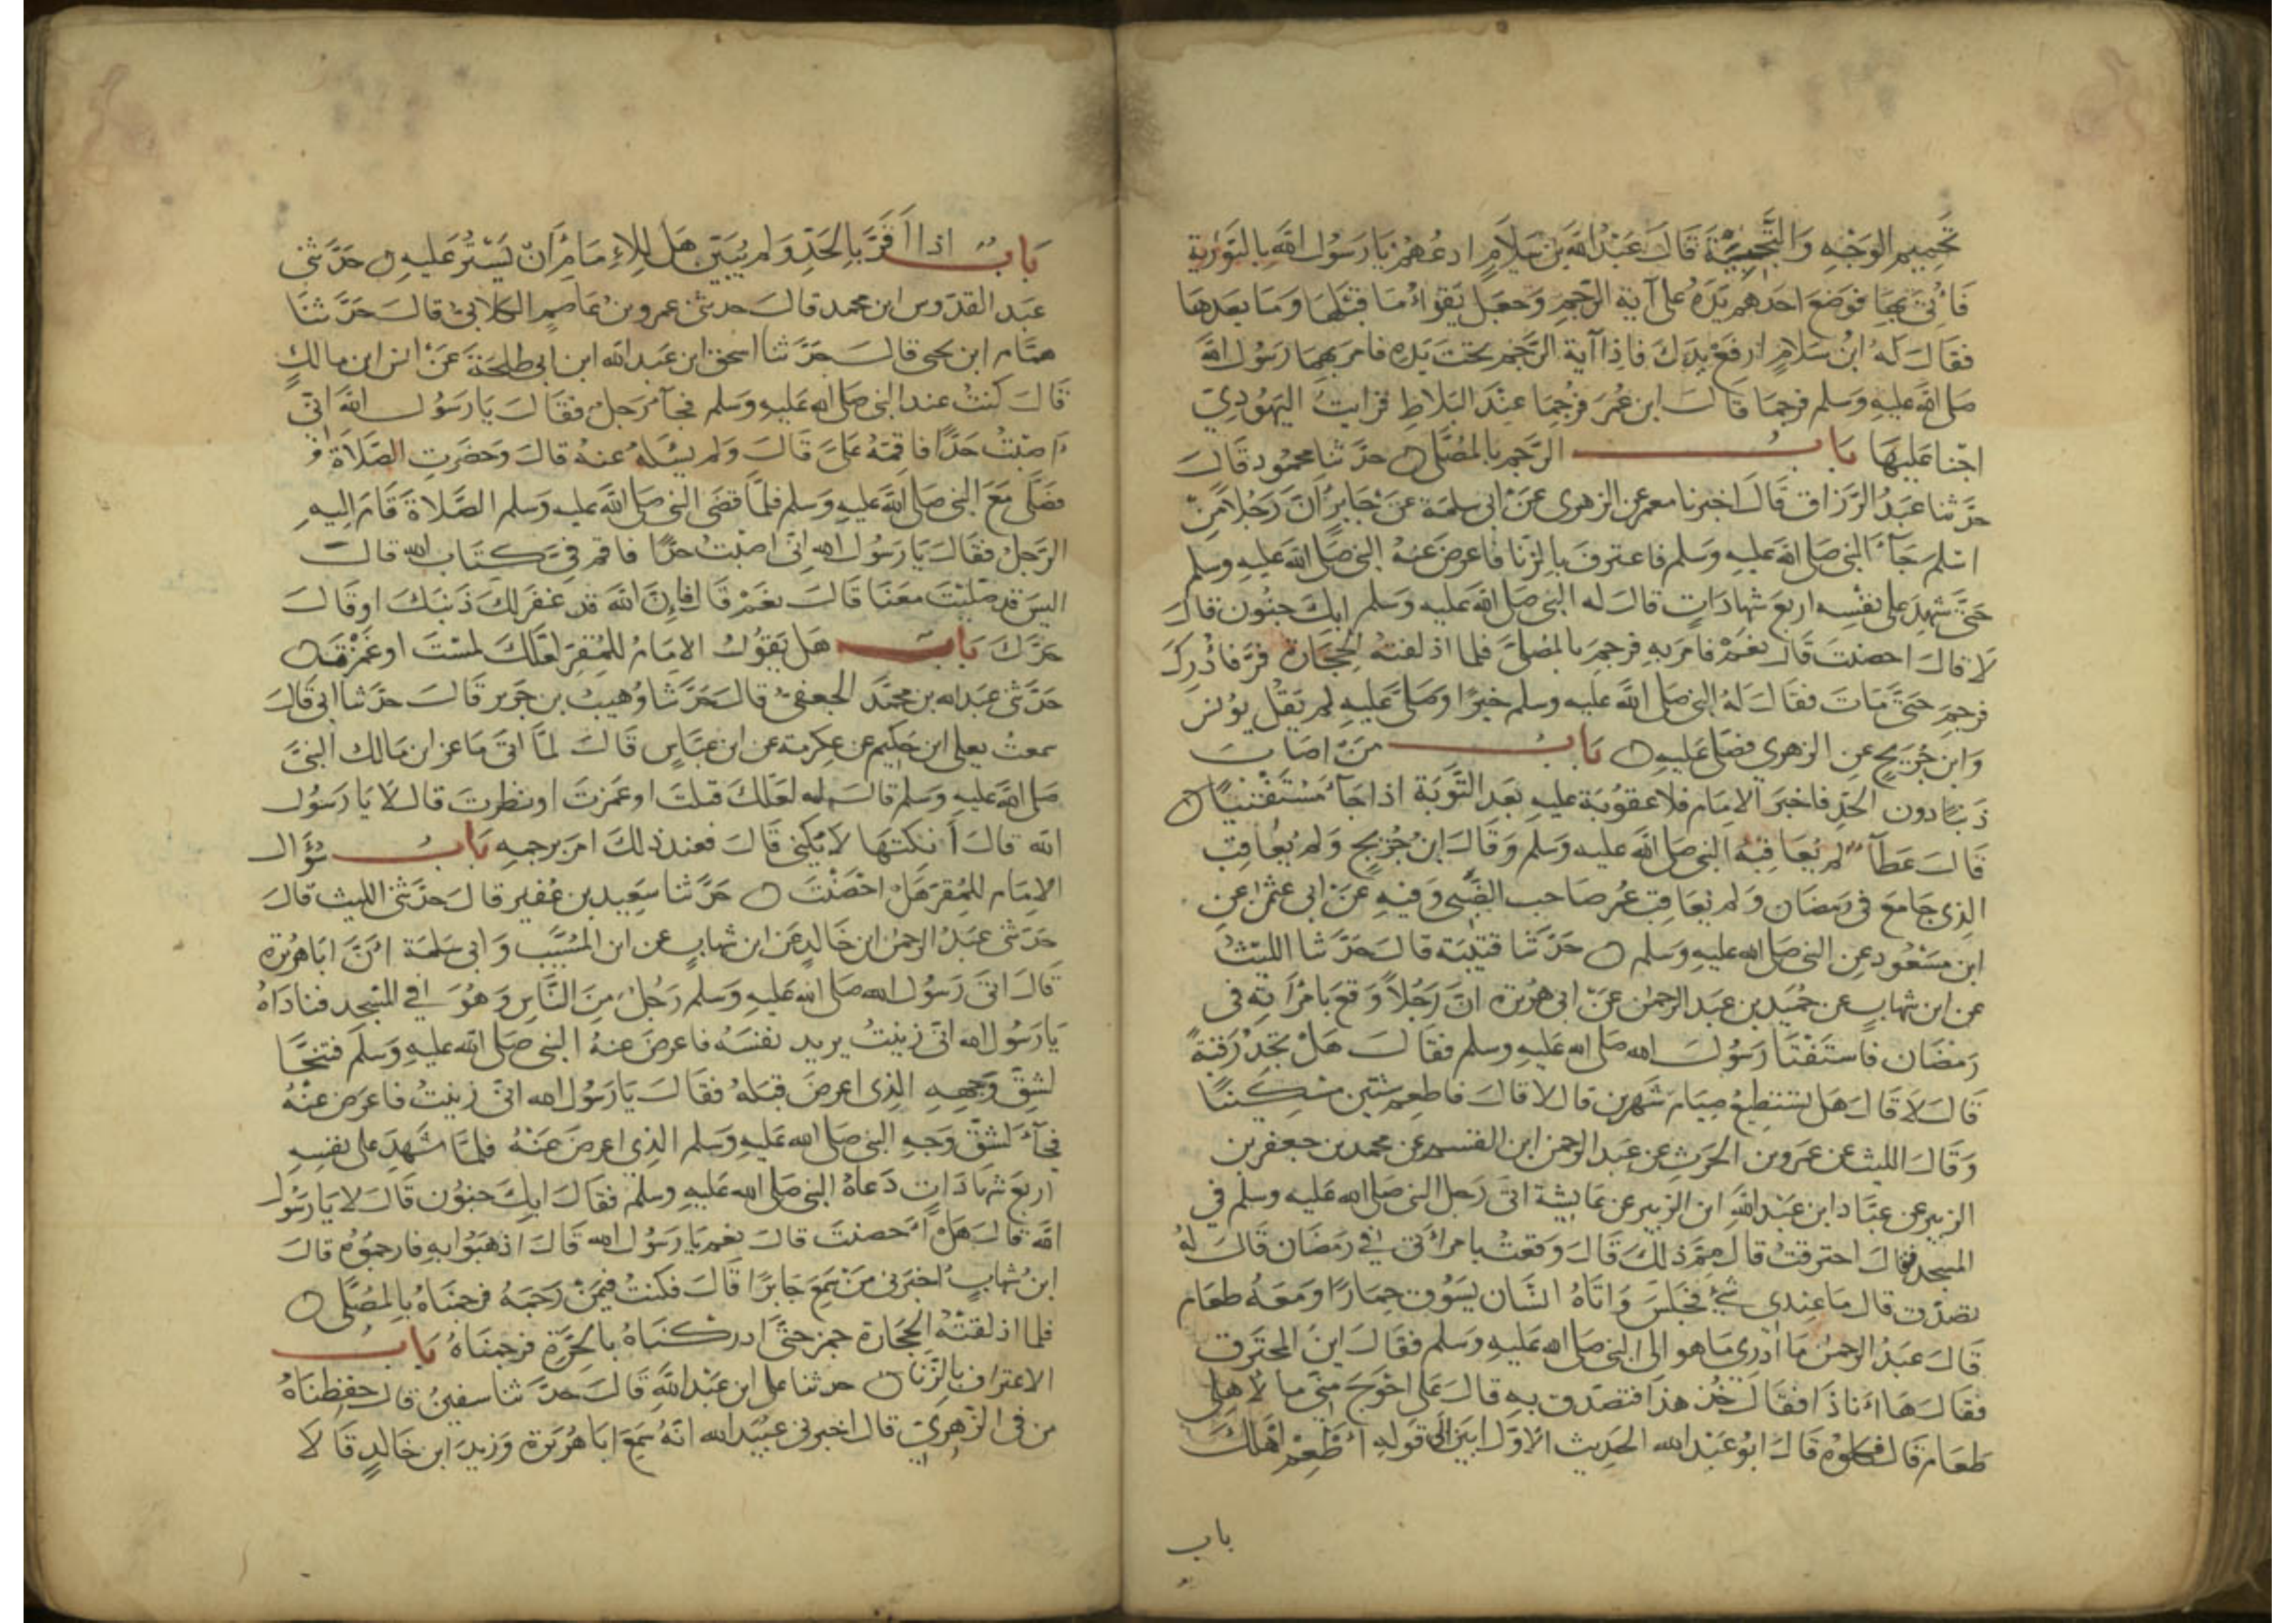 تحميم الوجه والتجبية قال عبد الله بن سلام ادعهم يا رسول الله بالتورية
فأتي بها فوضع احدهم يده على آية الرجم وجعل يقرأ ما قبلها وما بعدها
فقال له ابن سلام ارفع يدك فاذا آية الرجم تحت يده فامر بهما رسول الله
صلى الله عليه وسلم فرجما قال ابن عمر فرجما عند البلاط فرايت اليهودي
اجنا عليها باب الرجم بالمصلى حدثنا محمود قال
حدثنا عبد الرزاق قال اخبرنا معمر عن الزهري عن ابي سلمة عن جابر أن رجلا من
اسلم جاء النبي صلى الله عليه وسلم فاعترف بالزنا فاعرض عنه النبي صلى الله عليه وسلم
حتى شهد على نفسه اربع شهادات قال له النبي صلى الله عليه وسلم ابك جنون قال
لا قال احصنت قال نعم فامر به فرجم بالمصلى فلما اذلقته الحجارة فر فأدرك
فرجم حتى مات فقال له النبي صلى الله عليه وسلم خيرا وصلى عليه لم يقل يونس
وابن جريج عن الزهري فصلى عليه باب من اصاب
ذنبا دون الحد فاخبر الامام فلا عقوبة عليه بعد التوبة اذا جاء مستفتيا
قال عطاء لم يعاقبه النبي صلى الله عليه وسلم وقال ابن جريج ولم يعاقب
الذي جامع في رمضان ولم يعاقب عمر صاحب الضبي وفيه عن ابي عثمن عن
ابن مسعود عن النبي صلى الله عليه وسلم حدثنا قتيبة قال حدثنا الليث
عن ابن شهاب عن حميد بن عبد الرحمن عن ابي هريرة ان رجلا وقع بامرأته في
رمضان فاستفتا رسول الله صلى الله عليه وسلم فقال هل تجد رقبة
قال لا قال هل تستطيع صيام شهرين قال لا قال فاطعم ستين مسكينا
وقال الليث عن عمرو بن الحرث عن عبد الرحمن ابن القسم عن محمد بن جعفر بن
الزبير عن عباد ابن عبد الله ابن الزبير عن عايشة اتى رجل النبي صلى الله عليه وسلم في
المسجد فقال احترقت قال مم ذلك قال وقعت بامرأتي في رمضان قال له
تصدق قال ما عندي شيء فجلس واتاه انسان يسوق حمارا ومعه طعام
قال عبد الرحمن ما أدري ما هو الى النبي صلى الله عليه وسلم فقال اين المحترق
فقال ها أنا ذا فقال خذ هذا فتصدق به قال على احوج مني ما لاهلي
طعام قال فكلوه قال ابو عبد الله الحديث الاول ابين الى قوله أطعم أهلك
باب
باب اذا أقر بالحد ولم يبين هل للإمام أن يستر عليه حدثني
عبد القدوس ابن محمد قال حدثني عمرو بن عاصم الكلابي قال حدثنا
همام ابن يحيى قال حدثنا اسحق ابن عبد الله ابن ابي طلحة عن انس ابن مالك
قال كنت عند النبي صلى الله عليه وسلم فجاءه رجل فقال يا رسول الله اني
اصبت حدا فاقمه علي قال ولم يسئله عنه قال وحضرت الصلاة
فصلى مع النبي صلى الله عليه وسلم فلما قضى النبي صلى الله عليه وسلم الصلاة قام اليه
الرجل فقال يا رسول الله اني اصبت حدا فاقم في كتاب الله قال
اليس قد صليت معنا قال نعم قال فإن الله قد غفر لك ذنبك او قال
حدك باب هل يقول الامام للمقر لعلك لمست او غمزت
حدثني عبد الله بن محمد الجعفي قال حدثنا وهيب بن جرير قال حدثنا ابي قال
سمعت يعلى ابن حكيم عن عكرمة عن ابن عباس قال لما اتى ماعز ابن مالك النبي
صلى الله عليه وسلم قال له لعلك قبلت او غمزت او نظرت قال لا يا رسول
الله قال أنكتها لا يكني قال فعند ذلك امر برجمه باب سؤال
الامام للمقر هل احصنت حدثنا سعيد بن عفير قال حدثني الليث قال
حدثني عبد الرحمن ابن خالد عن ابن شهاب عن ابن المسيب وابي سلمة أن ابا هريرة
قال اتى رسول الله صلى الله عليه وسلم رجل من الناس وهو في المسجد فناداه
يا رسول الله اني زنيت يريد نفسه فاعرض عنه النبي صلى الله عليه وسلم فتنحا
لشق وجهه الذي اعرض قبله فقال يا رسول الله اني زنيت فاعرض عنه
فجاء لشق وجه النبي صلى الله عليه وسلم الذي اعرض عنه فلما شهد على نفسه
اربع شهادات دعاه النبي صلى الله عليه وسلم فقال ابك جنون قال لا يا رسول
الله قال هل أحصنت قال نعم يا رسول الله قال اذهبوا به فارجموه قال
ابن شهاب اخبرني من سمع جابرا قال فكنت فيمن رجمه فرجمناه بالمصلى
فلما اذلقته الحجارة جمز حتى ادركناه بالحرة فرجمناه باب
الاعتراف بالزنا حدثنا علي ابن عبد الله قال حدثنا سفين قال حفظناه
من في الزهري قال اخبرني عبيد الله انه سمع ابا هريرة وزيد ابن خالد قالا